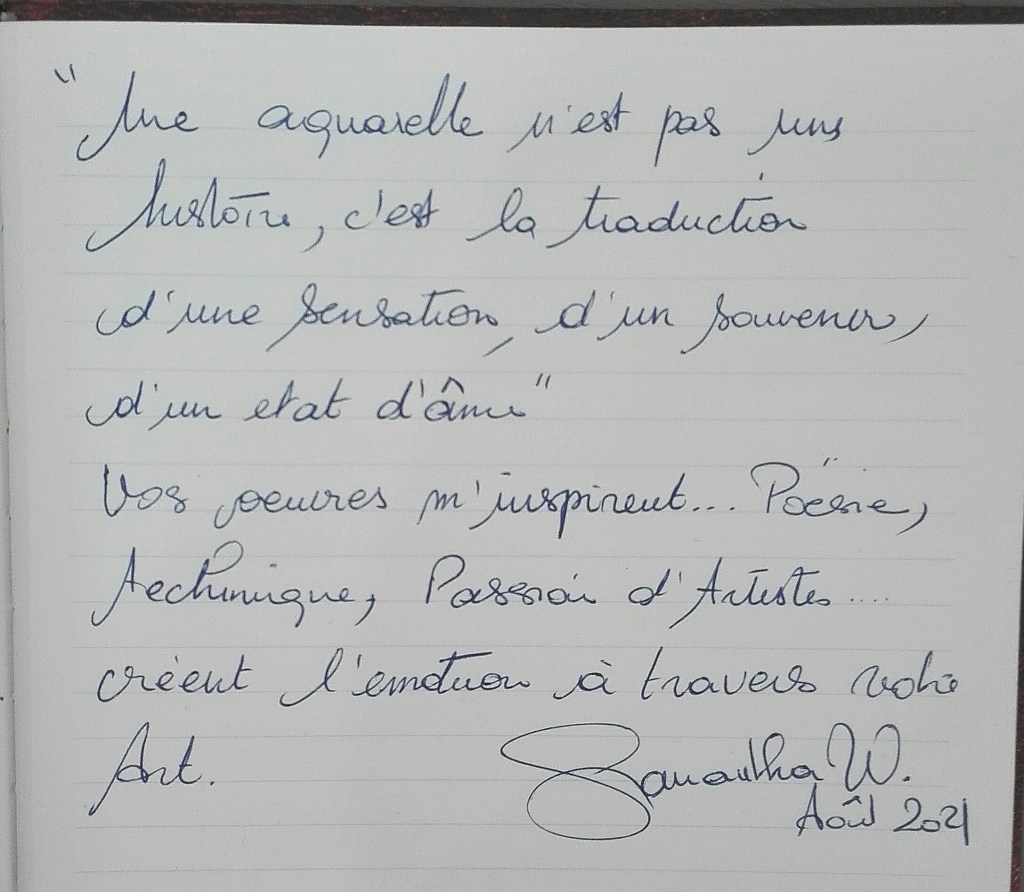 "Une aquarelle n'est pas une
histoire, c'est la traduction
d'une sensation, d'un souvenir,
d'un etat d'âme"
Vos oeuvres m'inspirent... Poësie,
technique, Passion d'Artistes....
créent l'emotion à travers votre
Art. Samantha W.
Août 2021